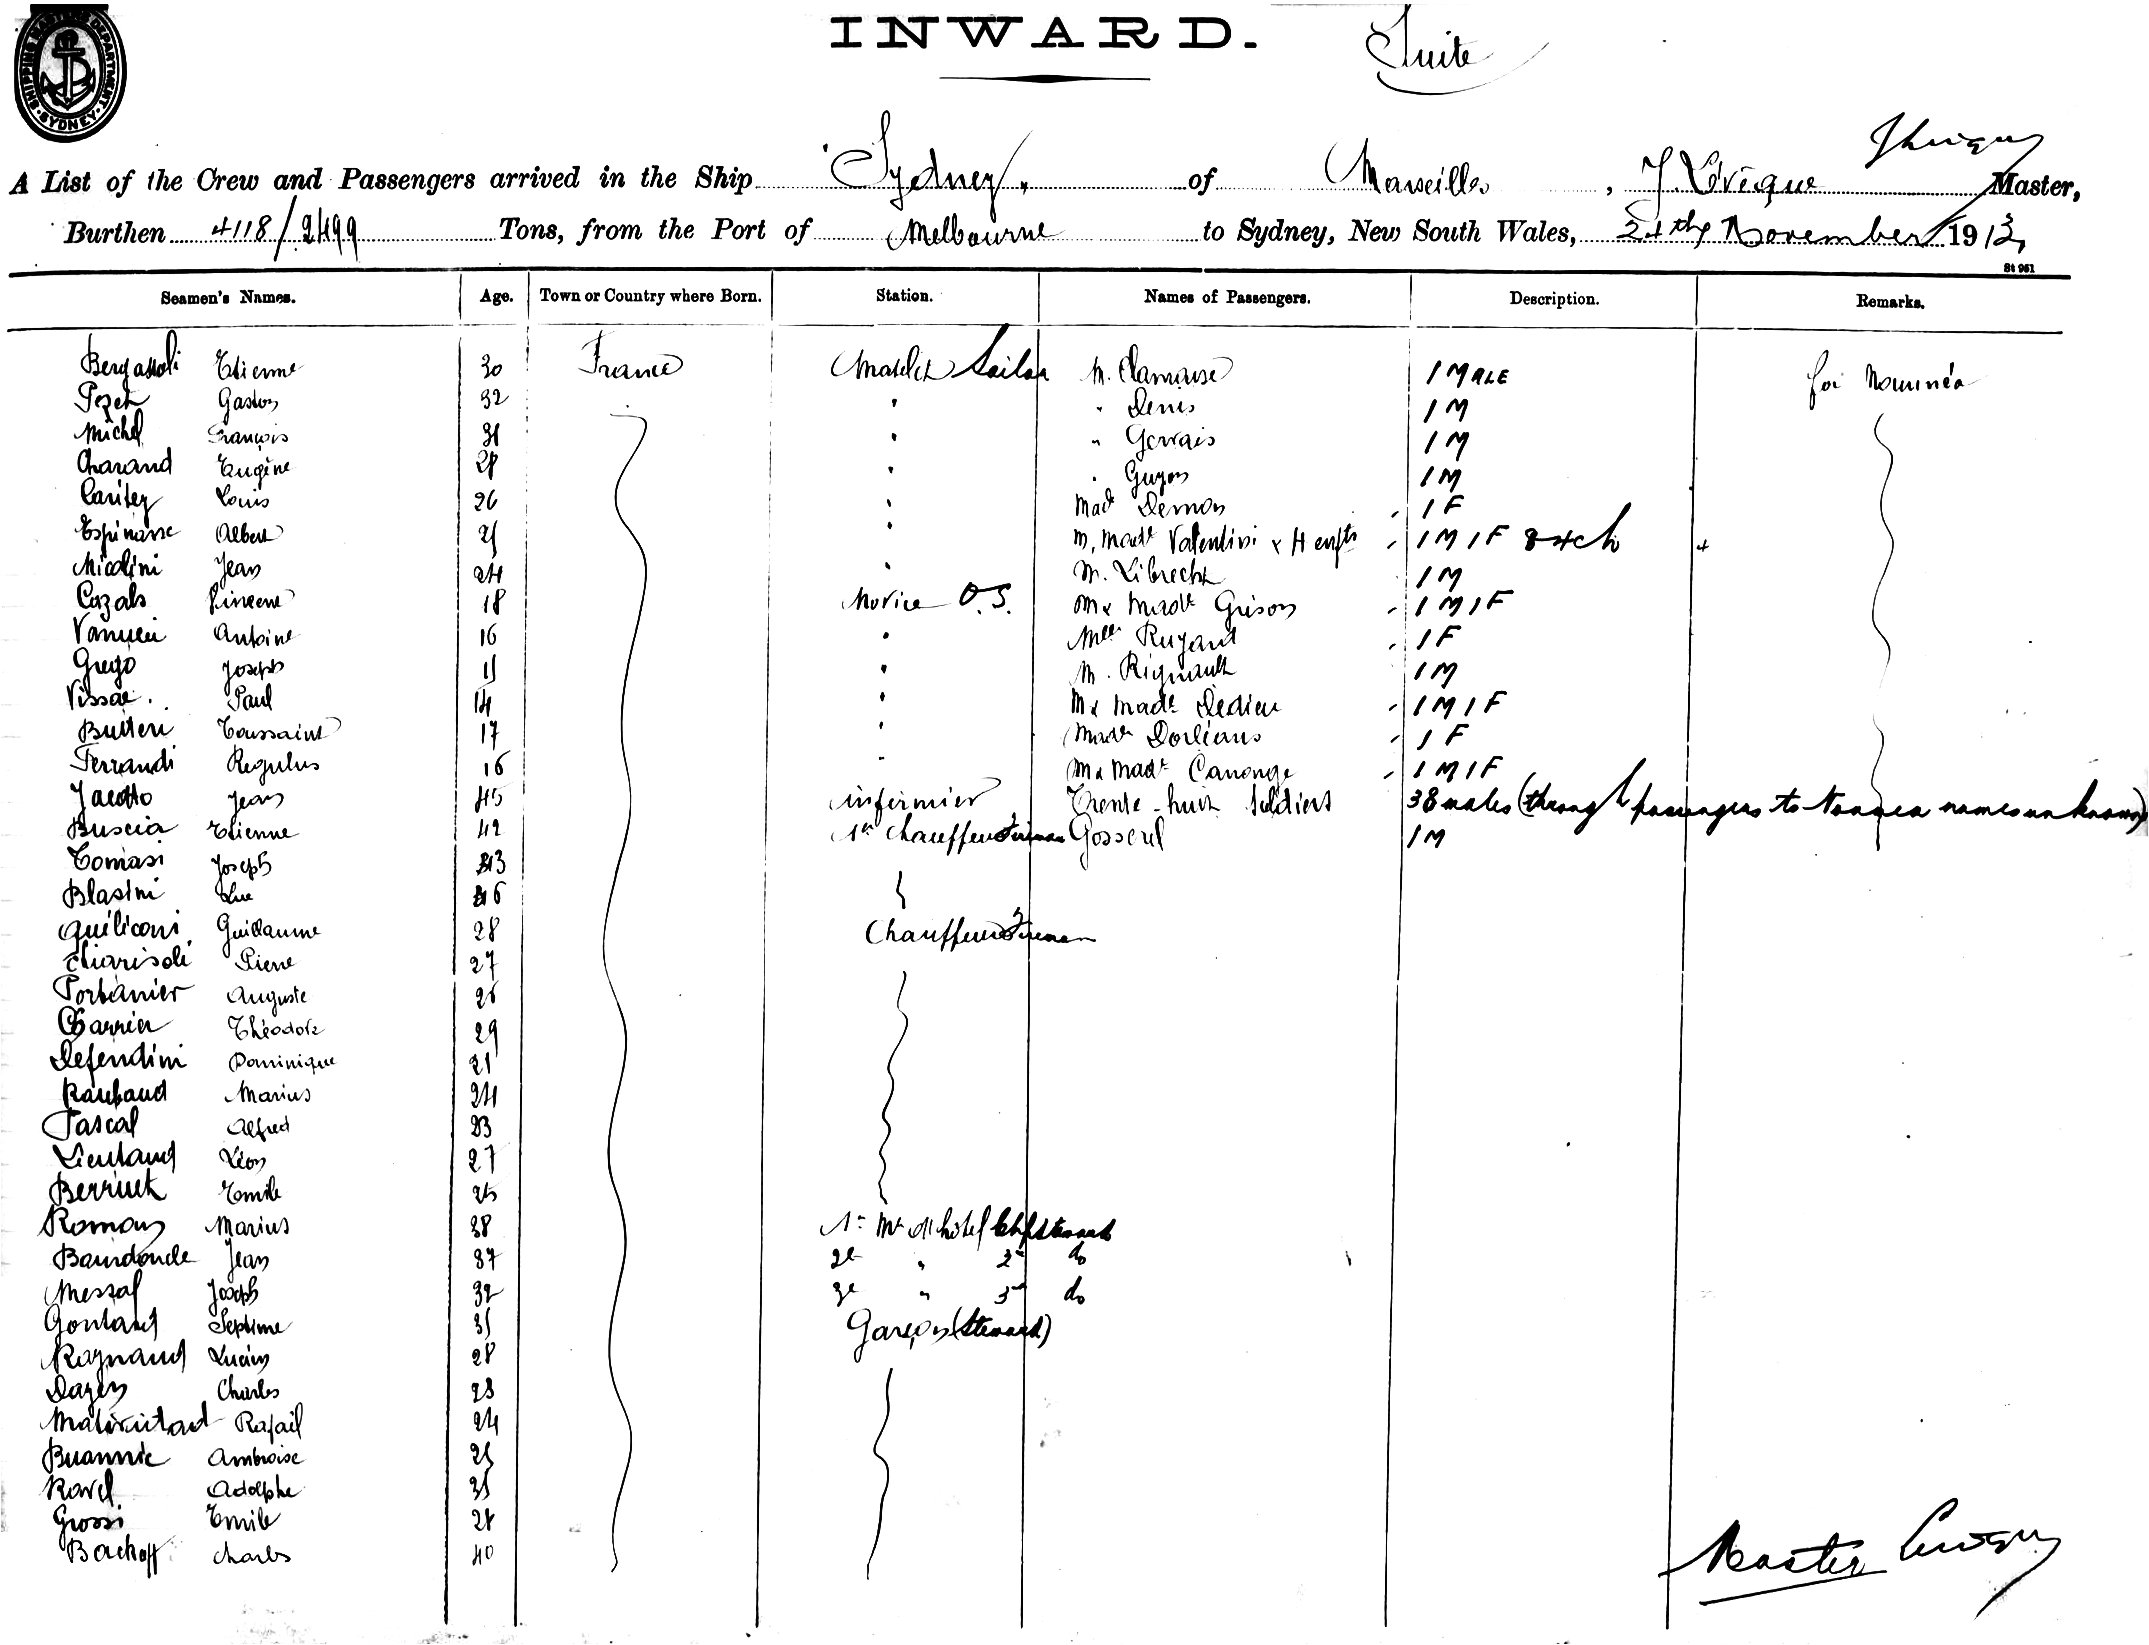 SHIPPING MASTERS DEPARTMENT · SYDNEY ·
INWARD. Suite
A List of the Crew and Passengers arrived in the Ship Sydney, of Marseille, J. Lévêque Master,
Burthen 4118/2499 Tons, from the Port of Melbourne to Sydney, New South Wales, 24th November 1913,
St 961
Seamen's Names. Age. Town or Country where Born. Station. Names of Passengers. Description. Remarks.
Etienne 30 France Matelot Sailor M. Clamouse 1 MALE for Nouméa
Pozet Gaston 32 " " Denis 1 M
Michel François 31 " " Gervais 1 M
Charand Eugène 28 " " Guyon 1 M
Louis 26 " Made Demon 1 F
Espinasse Albert 25 " M. Made Valentini & 4 enfts 1 M 1 F 4 ch
Nicolini Jean 24 " M. Librecht 1 M
Cazals Vincent 18 Novice O.S. M & Made Grison 1 M 1 F
Vanucci Antoine 16 " Melle Ruyant 1 F
Grego Joseph 15 " M. Rignault 1 M
Vissac Paul 14 " M & Made Dedieu 1 M 1 F
Toussaint 17 " Made Dorléans 1 F
Ferrandi Regulus 16 " M & Made Canonge 1 M 1 F
Jacotto Jean 45 infirmier Trente-huit Soldiers 38 males (through passengers to Noumea names unknown)
Buscia Etienne 42 1er Chauffeur Fireman Gosserel 1 M
Tomasi Joseph 43
Blasini Luc 46
Quiliconi Guillaume 28 Chauffeur Fireman
Pierre 27
Portanier Auguste 26
Charrier Théodore 29
Defendini Dominique 21
Raubaud Marius 24
Pascal Alfred 23
Lieutaud Léon 27
Berrut Emile 25
Roman Marius 38 1er Me d'hôtel Chf Steward
Jean 37 2e " 2nd do
Messal Joseph 32 3e " 3rd do
Gontard Septime 35 Garçon (Steward)
Raynaud Lucien 28
Dayen Charles 23
Rafail 24
Buannic Ambroise 25
Ravel Adolphe 35
Grossi Emile 28
Backoff Charles 40
Master Lévêque